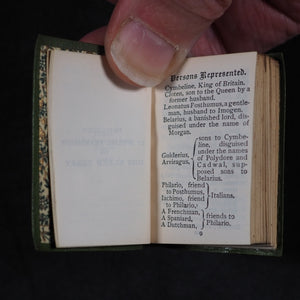 Persons Represented.
Cymbeline, King of Britain.
Cloten, son to the Queen by a
former husband.
Leonatus Posthumus, a gentle-
man, husband to Imogen.
Belarius, a banished lord, dis-
guised under the name of
Morgan.
Guiderius,
Arviragus,
sons to Cymbe-
line, disguised
under the names
of Polydore and
Cadwal, sup-
posed sons to
Belarius.
Philario, friend
to Posthumus,
Iachimo, friend
to Philario,
Italians.
A Frenchman,
A Spaniard,
A Dutchman,
friends to
Philario.